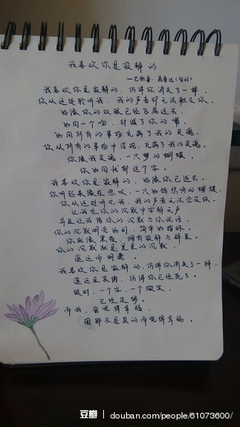 我喜欢你是寂静的
我喜欢你是寂静的，仿佛你消失了一样，
你从远处聆听我，我的声音却无法触及你。
好像你的双眼已经飞离远去，
如同一个吻，封缄了你的嘴。
如同所有的事物充满了我的灵魂，
你从所有的事物中浮现，充满了我的灵魂。
你像我灵魂，一只梦的蝴蝶，
你如同忧郁这个字。
我喜欢你是寂静的，好像你已远去。
你听起来像在悲叹，一只如鸽悲鸣的蝴蝶。
你从远处听见我，我的声音无法企及你。
让我在你的沉默中安静无声
并且让我借你的沉默与你说话，
你的沉默明亮如灯，简单如指环，
你就像黑夜，拥有寂静与群星。
你的沉默就是星星的沉默，
遥远而明亮。
我喜欢你是寂静的，仿佛你消失了一样，
遥远且哀伤，仿佛你已经死了。
彼时，一个字，一个微笑，
已经足够。
而我，会觉得幸福，
因那不是真的而觉得幸福。
豆瓣 douban.com/people/61073600/